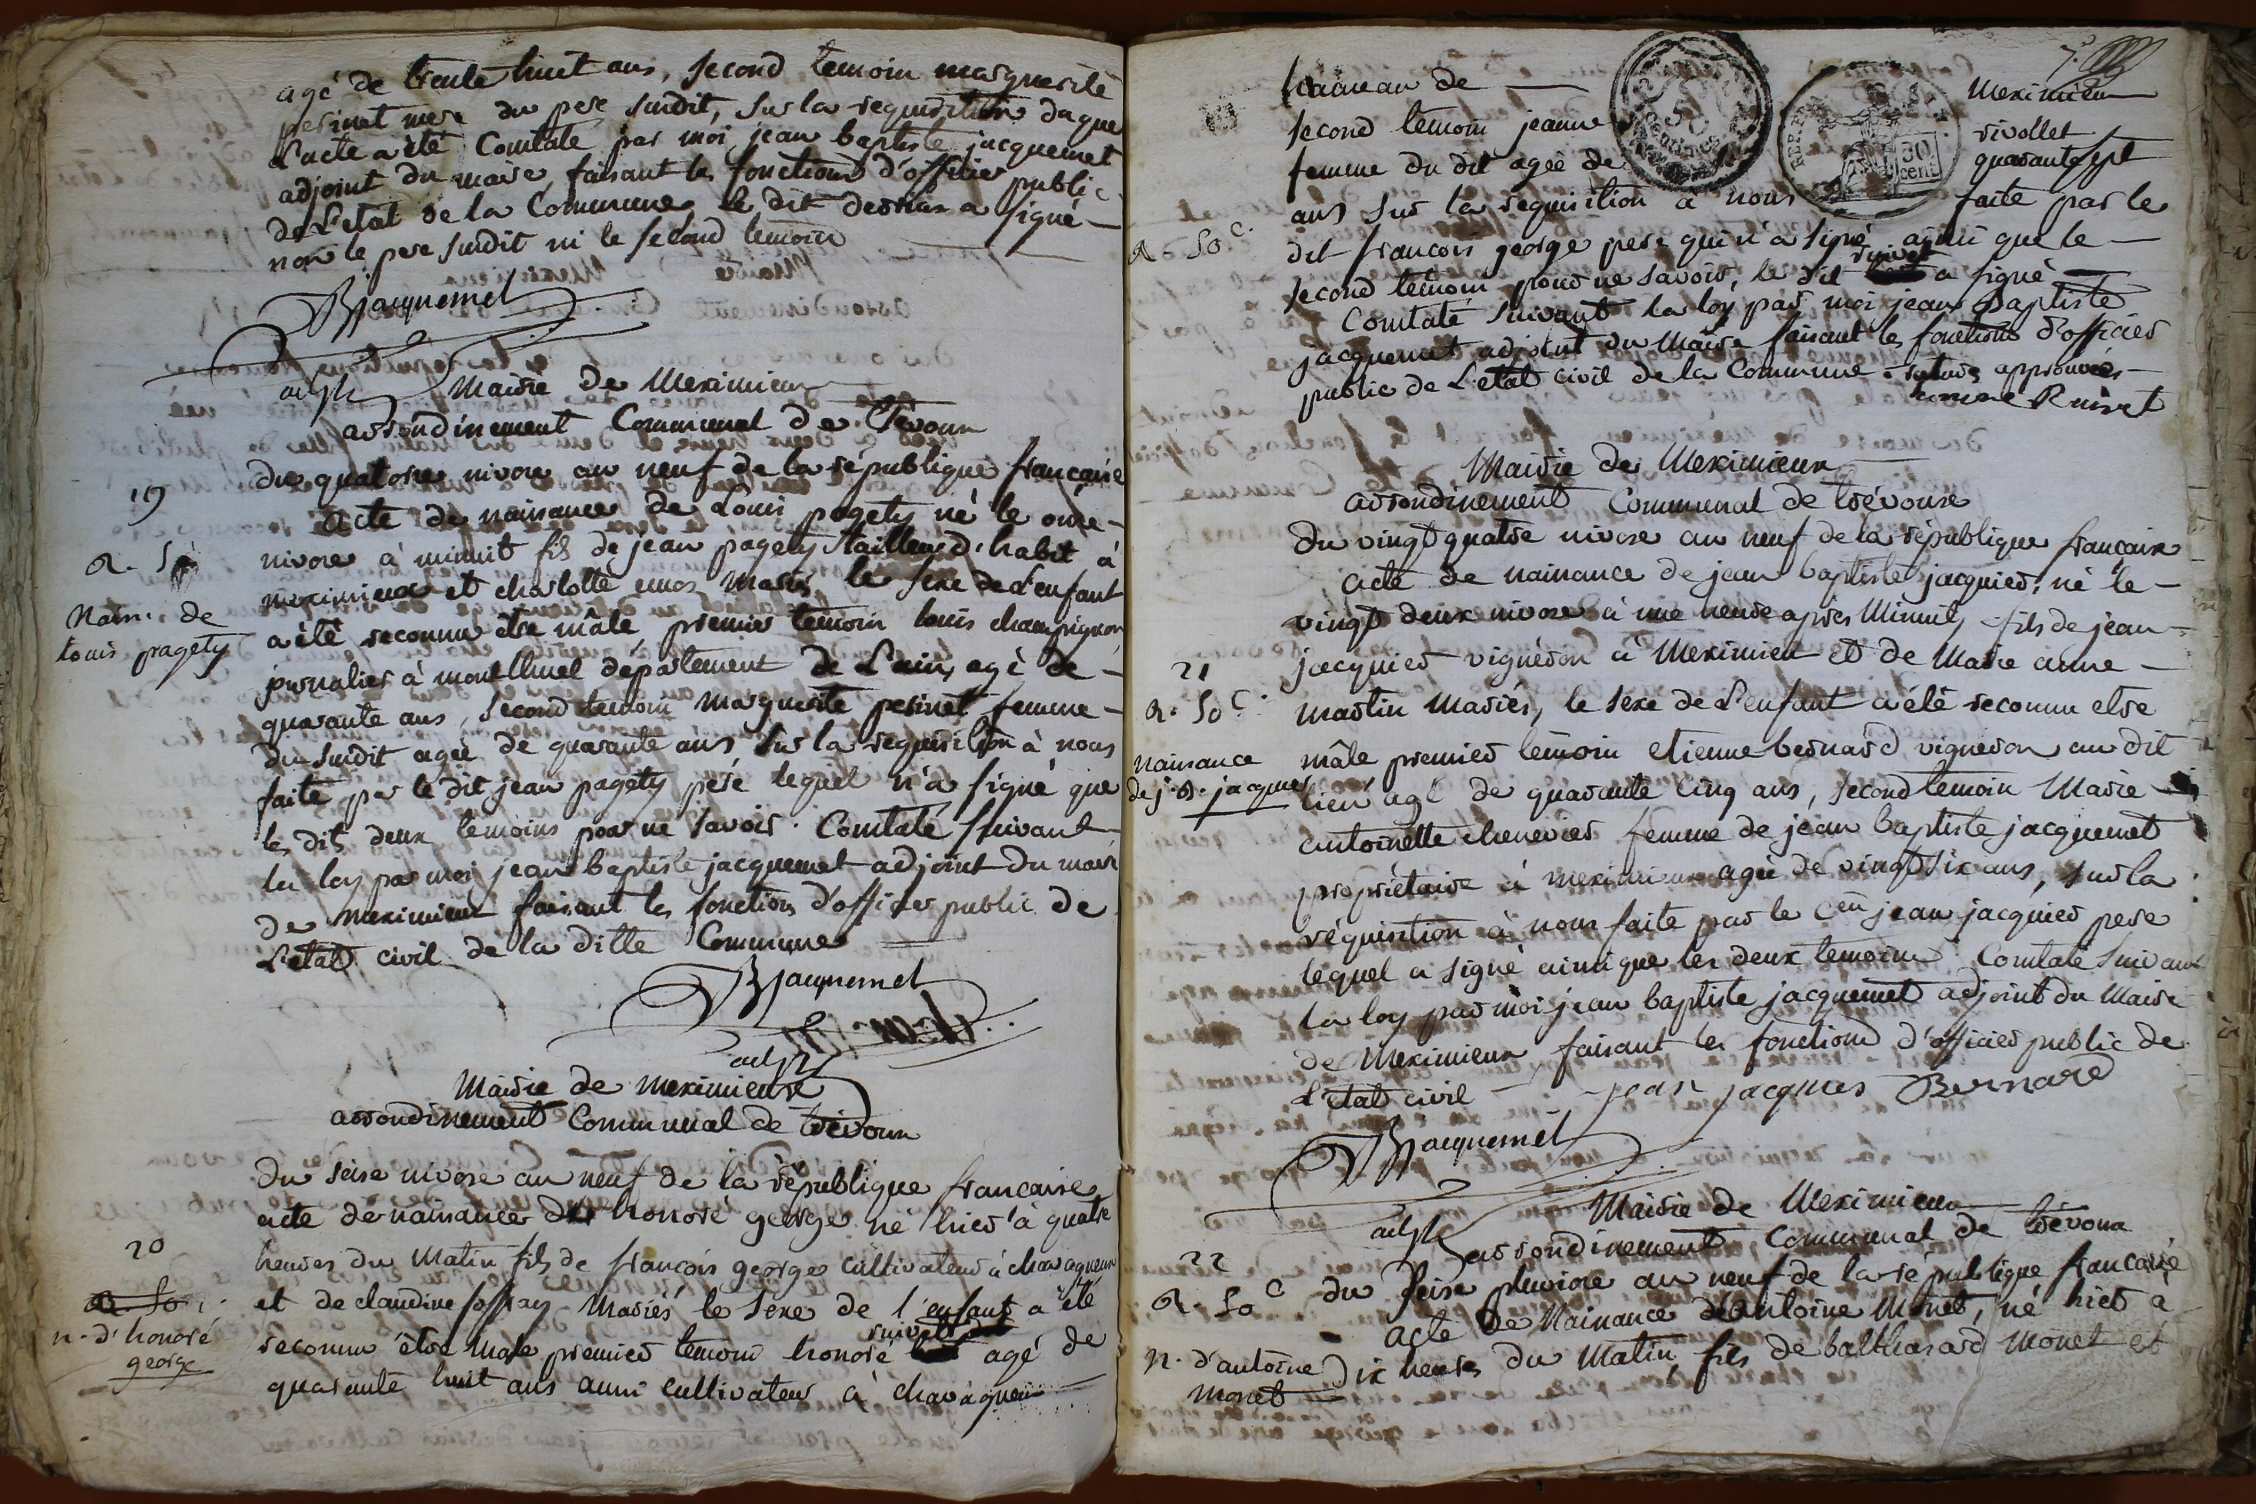 agé de trente huit ans, second temoin marguerite
perinet mere du pere susdit, sur la requisition duquel
l'acte a été Constaté par moi jean baptiste jacquemet
adjoint du maire faisant les fonctions d'officier public
de L'etat de la Commune le dit a signé
non le pere susdit ni le second temoin
JBjacquemet
adjt
Mairie de Meximieux
arrondinement Communal de Trevoux
19
du quatorse nivose an neuf de la république francaise
acte de naissance de Louis pagety né le onse
R. 50
nivose à minuit fils de jean pagety tailleur d'habit à
meximieux et charlotte mariés le sexe de L'enfant
Nais. de
Louis pagety
a été reconnu etre mâle premier temoin louis champignon
journalier à montlluel département de L'ain, agé de
quarante ans, second temoin marguerite perinet femme
du susdit agée de quarante ans sur la requisition à nous
faite par le dit jean pagety pere lequel n'a signé que
les dits deux temoins pour ne savoir. Constaté suivant
la loy par moi jean baptiste jacquemet adjoint du maire
de meximieux faisant les fonctions d'officier public de
L'etat civil de la ditte Commune
JBjacquemet
adjt
Mairie de meximieux
arrondinement Communal de trévoux
du seise nivose an neuf de la république francaise
acte de naissance de honoré george né hier à quatre
20
heures du matin fils de françois george cultivateur à chavagneux
R. 50 c.
et de claudine mariés le sexe de l'enfant a été
n. d'honoré
george
reconnu être mâle premier temoin honoré rivollet agé de
quarante huit ans aussi cultivateur à chavagneux
7.
hameau de Meximieux
second temoin jeanne rivollet
50 centimes
REP. FRA.
50 cent.
femme du dit agée de quarante sept
ans sur la requisition à nous faite par le
R. 50 c.
dit francois george pere qui n'a signé ainsi que le
second temoin pour ne savoir, le dit rivet a signé
Constaté suivant la loy par moi jean Baptiste
jacquemet adjoint du Maire faisant les fonctions d'officier
public de L'etat civil de la Commune. ratures approuvées
honore Ruivet
Mairie de Meximieux
arrondinement Communal de trévoux
Du vingt quatre nivose an neuf de la république française
acte de naissance de jean baptiste jacquier, né le
vingt deux nivose à une heure après Minuit, fils de jean
21
jacquier vigneron à Meximieu et de Marie anne
R. 50 c.
martin Mariés, le sexe de L'enfant a été reconnu etre
naissance
de j. B. jacquier
mâle premier temoin etienne bernard vigneron au dit
lieu agé de quarante cinq ans, second temoin Marie
antoinette chenevier femme de jean baptiste jacquemet
propriétaire à meximieux agée de vingt six ans, sur la
réquisition à nous faite par le Cen jean jacquier pere
lequel a signé ainsi que les deux temoins Constaté suivant
la loy par moi jean baptiste jacquemet adjoint du Maire
de Meximieux faisant les fonctions d'officier public de
L'etat civil
jean jacques Bernard
JBjacquemet
adjt
Mairie de Meximieux
arrondinement Communal de trévoux
22
R. 50 c
du seise pluviose an neuf de la république francaise
acte de Naissance d'antoine Monet, né hier à
n. d'antoine
Monet
Dix heures du Matin fils de balthasard Monet et